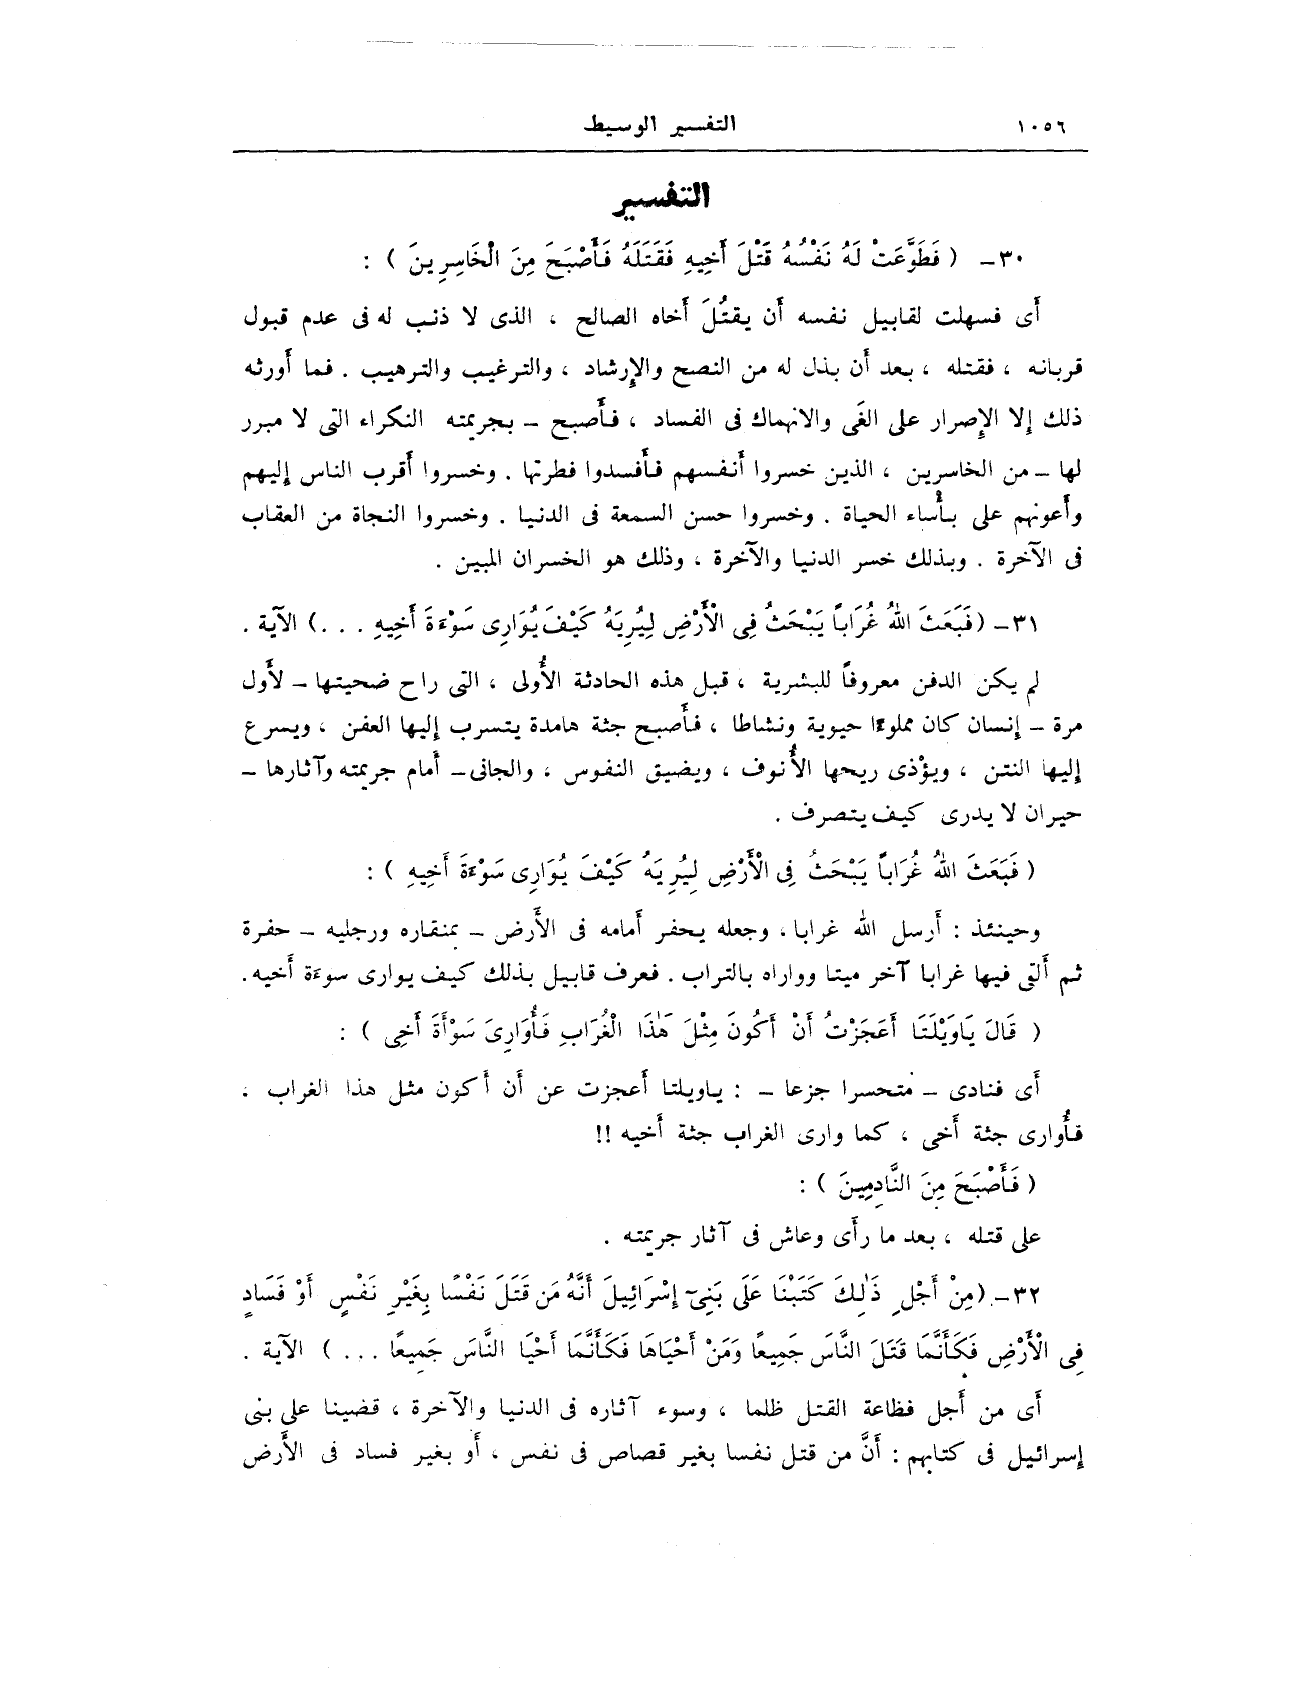 ١٠٥٦ التفسير الوسيط
التفسير
٣٠- ( فَطَوَّعَتْ لَهُ نَفْسُهُ قَتْلَ أَخِيهِ فَقَتَلَهُ فَأَصْبَحَ مِنَ الْخَاسِرِينَ ) :
أى فسهلت لقابيل نفسه أن يقتُلَ أخاه الصالح ، الذى لا ذنب له فى عدم قبول
قربانه ، فقتله ، بعد أن بذل له من النصح والإرشاد ، والترغيب والترهيب . فما أورثه
ذلك إلا الإصرار على الغَى والانهماك فى الفساد ، فأصبح - بجريمته النكراء التى لا مبرر
لها - من الخاسرين ، الذين خسروا أنفسهم فأفسدوا فطرتها . وخسروا أقرب الناس إليهم
وأعونهم على بأساء الحياة . وخسروا حسن السمعة فى الدنيا . وخسروا النجاة من العقاب
فى الآخرة . وبذلك خسر الدنيا والآخرة ، وذلك هو الخسران المبين .
٣١- (فَبَعَثَ اللهُ غُرَاباً يَبْحَثُ فِى الْأَرْضِ لِيُرِيَهُ كَيْفَ يُوَارِى سَوْءَةَ أَخِيهِ . . .) الآية .
لم يكن الدفن معروفاً للبشرية ، قبل هذه الحادثة الأُولى ، التى راح ضحيتها - لأَول
مرة - إنسان كان مملوءًا حيوية ونشاطا ، فأصبح جثة هامدة يتسرب إليها العفن ، ويسرع
إليها النتن ، ويؤذى ريحها الأُنوف ، ويضيق النفوس ، والجانى - أمام جريمته وآثارها -
حيران لا يدرى كيف يتصرف .
( فَبَعَثَ اللهُ غُرَاباً يَبْحَثُ فِى الْأَرْضِ لِيُرِيَهُ كَيْفَ يُوَارِى سَوْءَةَ أَخِيهِ ) :
وحينئذ : أرسل الله غرابا ، وجعله يحفر أمامه فى الأَرض - بمنقاره ورجليه - حفرة
ثم أَلقى فيها غرابا آخر ميتا وواراه بالتراب . فعرف قابيل بذلك كيف يوارى سوءة أخيه .
( قَالَ يَاوَيْلَتَا أَعَجَزْتُ أَنْ أَكُونَ مِثْلَ هَٰذَا الْغُرَابِ فَأُوَارِىَ سَوْأَةَ أَخِى ) :
أى فنادى - متحسرا جزعا - : ياويلتا أعجزت عن أن أكون مثل هذا الغراب ،
فأُوارى جثة أخى ، كما وارى الغراب جثة أخيه !!
( فَأَصْبَحَ مِنَ النَّادِمِينَ ) :
على قتله ، بعد ما رأى وعاش فى آثار جريمته .
٣٢- (مِنْ أَجْلِ ذَٰلِكَ كَتَبْنَا عَلَى بَنِىٓ إِسْرَائِيلَ أَنَّهُ مَن قَتَلَ نَفْسًا بِغَيْرِ نَفْسٍ أَوْ فَسَادٍ
فِى الْأَرْضِ فَكَأَنَّمَا قَتَلَ النَّاسَ جَمِيعًا وَمَنْ أَحْيَاهَا فَكَأَنَّمَا أَحْيَا النَّاسَ جَمِيعًا ... ) الآية .
أى من أجل فظاعة القتل ظلما ، وسوء آثاره فى الدنيا والآخرة ، قضينا على بنى
إسرائيل فى كتابهم : أنَّ من قتل نفسا بغير قصاص فى نفس ، أَو بغير فساد فى الأَرض